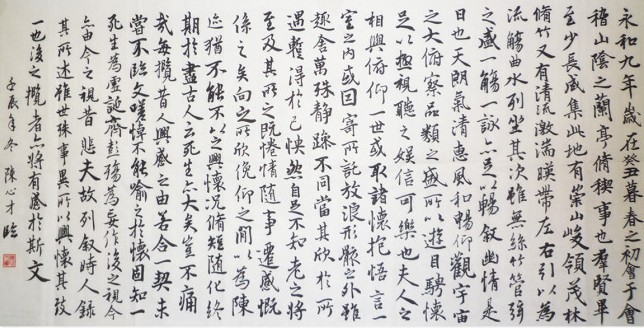 永和九年歲在癸丑暮春之初會于會
稽山陰之蘭亭脩禊事也羣賢畢
至少長咸集此地有崇山峻領茂林
脩竹又有清流激湍暎帶左右引以為
流觴曲水列坐其次雖無絲竹管絃
之盛一觴一詠亦足以暢敘幽情是
日也天朗氣清惠風和暢仰觀宇宙
之大俯察品類之盛所以遊目騁懷
足以極視聽之娛信可樂也夫人之
相與俯仰一世或取諸懷抱悟言一
室之內或因寄所託放浪形骸之外雖
趣舍萬殊靜躁不同當其欣於所
遇暫得於己怏然自足不知老之將
至及其所之既惓情隨事遷感慨
係之矣向之所欣俛仰之間以為陳
迹猶不能不以之興懷況脩短隨化終
期於盡古人云死生亦大矣豈不痛
哉每攬昔人興感之由若合一契未
嘗不臨文嗟悼不能喻之於懷固知一
死生為虛誕齊彭殤為妄作後之視今
亦由今之視昔悲夫故列敘時人錄
其所述雖世殊事異所以興懷其致
一也後之攬者亦將有感於斯文
壬辰年冬 陳心才臨